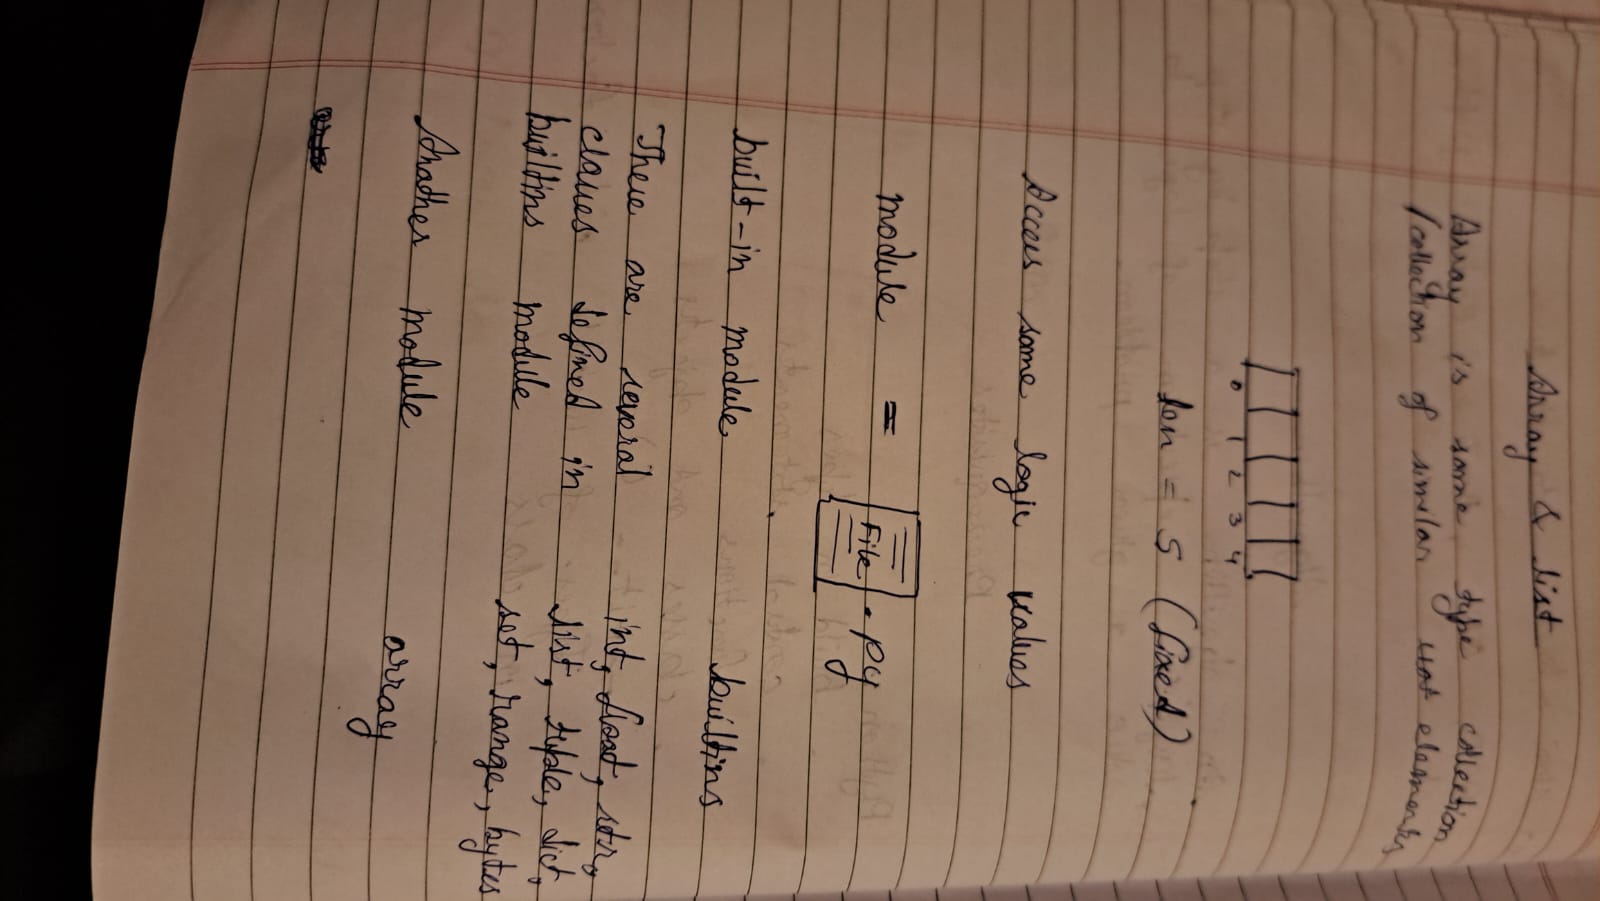 Array & list
Array is same type collection
/collection of similar elements
0 1 2 3 4
len = 5 (fixed)
Access some logic values
module = File .py
built-in module builtins
There are several int, float, str,
classes defined in list, tuple, dict,
builtins module set, range, bytes
Another module array